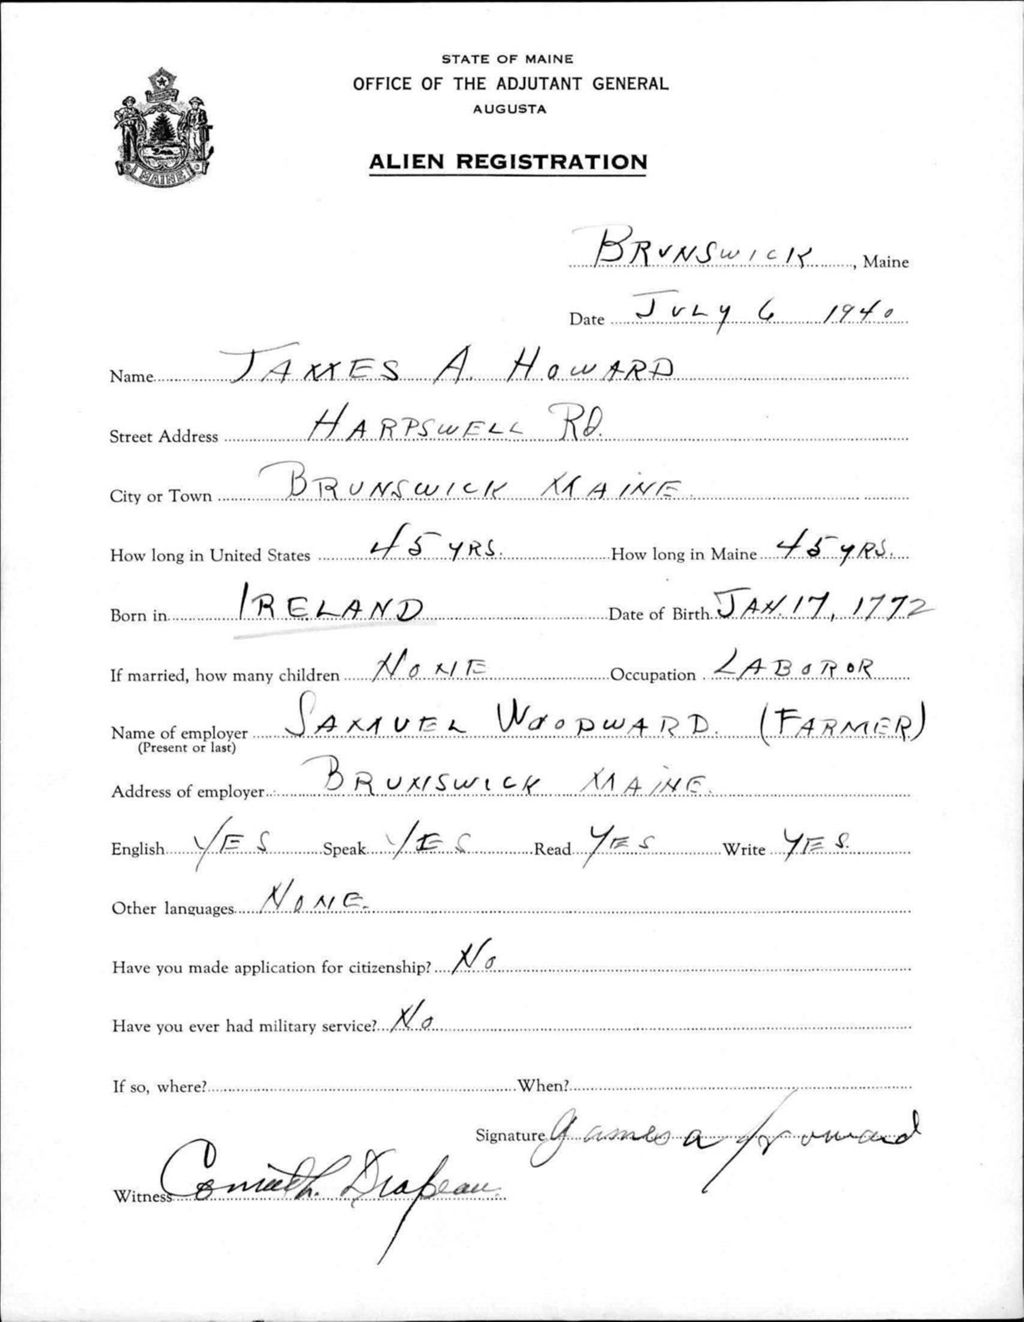 STATE OF MAINE
OFFICE OF THE ADJUTANT GENERAL
AUGUSTA
ALIEN REGISTRATION
MAINE
BRUNSWICK, Maine
Date JULY 6 1940
Name JAMES A. HOWARD
Street Address HARPSWELL RD.
City or Town BRUNSWICK MAINE.
How long in United States 45 YRS. How long in Maine 45 YRS.
Born in IRELAND Date of Birth JAN. 17, 1772
If married, how many children NONE Occupation LABOROR
Name of employer SAMUEL WOODWARD. (FARMER)
(Present or last)
Address of employer BRUNSWICK MAINE.
English YES Speak YES Read YES Write YES.
Other languages NONE.
Have you made application for citizenship? No
Have you ever had military service? No
If so, where? When?
Signature James a Howard
Witness L. Drapeau.